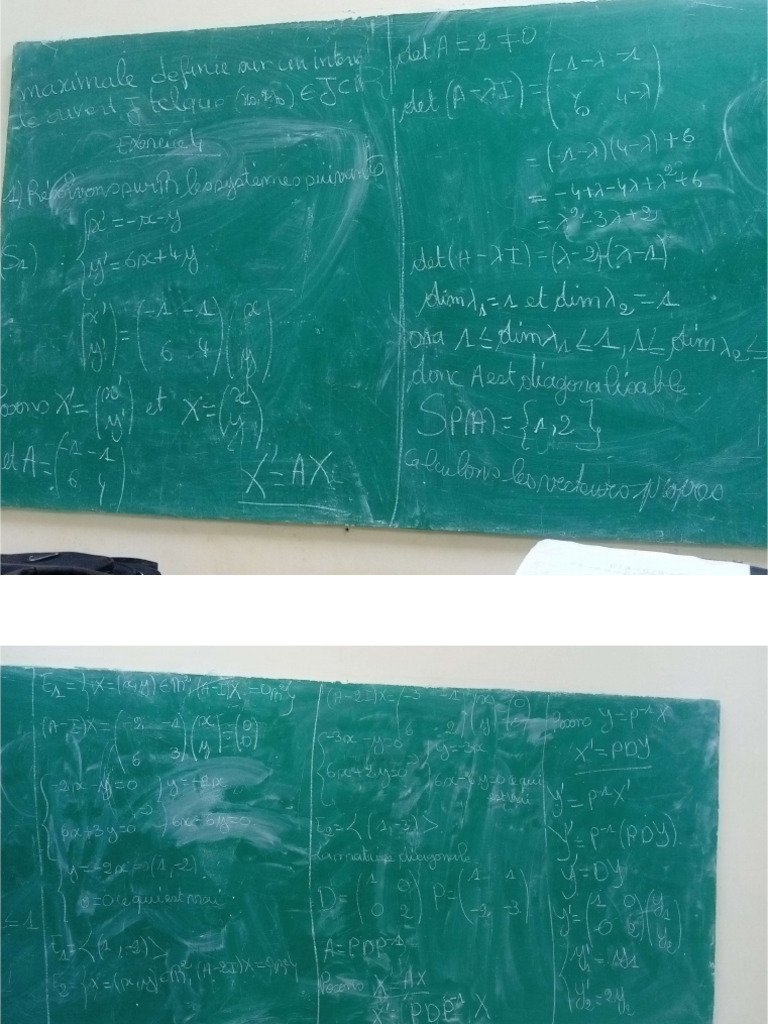 maximale définie sur un interv
lle ouvert J telque (x0, y0) ∈ J ⊂ I
Exercice 4
1) Résolvons sur IR les systèmes suivants
S1) { x' = -x - y
y' = 6x + 4y
(x' y') = (-1 -1
6 4) (x y)
Posons X' = (x' y') et X = (x y)
et A = (-1 -1
6 4)
X' = AX
det A = 2 ≠ 0
det (A - λI) = (-1-λ -1
6 4-λ)
= (-1-λ)(4-λ) + 6
= -4+λ-4λ+λ²+6
= λ² - 3λ + 2
det (A - λI) = (λ-2)(λ-1)
dim λ1 = 1 et dim λ2 = 1
ona 1 ≤ dim λ1 ≤ 1, 1 ≤ dim λ2 ≤
donc A est diagonalisable
SP(A) = {1, 2}
Calculons les vecteurs propos
≤ 1
E1 = {X = (x, y) ∈ IR², (A-I)X = 0IR²}
(A-I)X = (-2 -1
6 3) (x y) = (0 0)
{ -2x - y = 0
6x + 3y = 0
{ y = -2x
6x - 6x = 0
y = -2x (1, -2)
0 = 0 ce qui est vrai
E1 = <(1, -2)>
E2 = {X = (x, y) ∈ IR², (A-2I)X = 0IR²}
(A-2I)X = (-3 -1
6 2) (x y) =
{ -3x - y = 0
6x + 2y = 0
{ y = -3x
6x - 6x = 0 ce qui
est vrai
E2 = <(1, -3)>
La matrice diagonale
D = (1 0
0 2) P = (1 1
-2 -3)
A = PDP⁻¹
Posons X' = AX
X' = PDP⁻¹ X
Posons Y = P⁻¹X
X' = PDY
Y' = P⁻¹X'
Y' = P⁻¹(PDY)
Y' = DY
Y' = (1 0
0 2) (y1 y2)
{ y'1 = 1y1
y'2 = 2y2